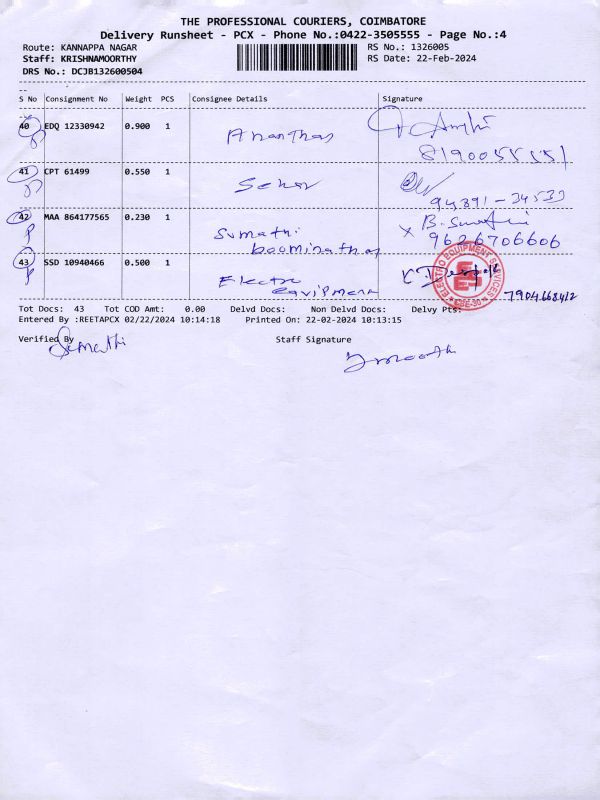 THE PROFESSIONAL COURIERS, COIMBATORE
Delivery Runsheet - PCX - Phone No.:0422-3505555 - Page No.:4
Route: KANNAPPA NAGAR
RS No.: 1326005
Staff: KRISHNAMOORTHY
RS Date: 22-Feb-2024
DRS No.: DCJB132600504
S No Consignment No Weight PCS Consignee Details Signature
40 EDQ 12330942 0.900 1 Ananthas
8190055551
41 CPT 61499 0.550 1
94891-34533
42 MAA 864177565 0.230 1 Sumathi
boominathan
B. Sumathi
9626706606
43 SSD 10940466 0.500 1 Electro
Equipment
ELECTRO EQUIPMENT SERVICES
CBE-30
Tot Docs: 43 Tot COD Amt: 0.00 Delvd Docs: Non Delvd Docs: Delvy Pts:
Entered By :REETAPCX 02/22/2024 10:14:18 Printed On: 22-02-2024 10:13:15
Verified By Staff Signature